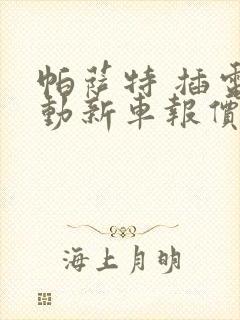 帕薩特 插電
動新車報價
海上月明